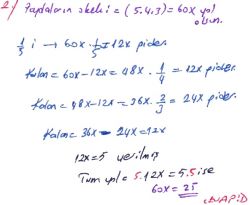 2/ Paydaların ekoki = (5.4.3) = 60x yol
olsun.
1/5 i → 60x · 1/5 = 12x gider.
Kalan = 60x - 12x = 48x · 1/4 = 12x gider.
Kalan = 48x - 12x = 36x · 2/3 = 24x gider.
Kalan = 36x - 24x = 12x
12x = 5 verilmiş
Tüm yol = 5.12x = 5.5 ise
60x = 25